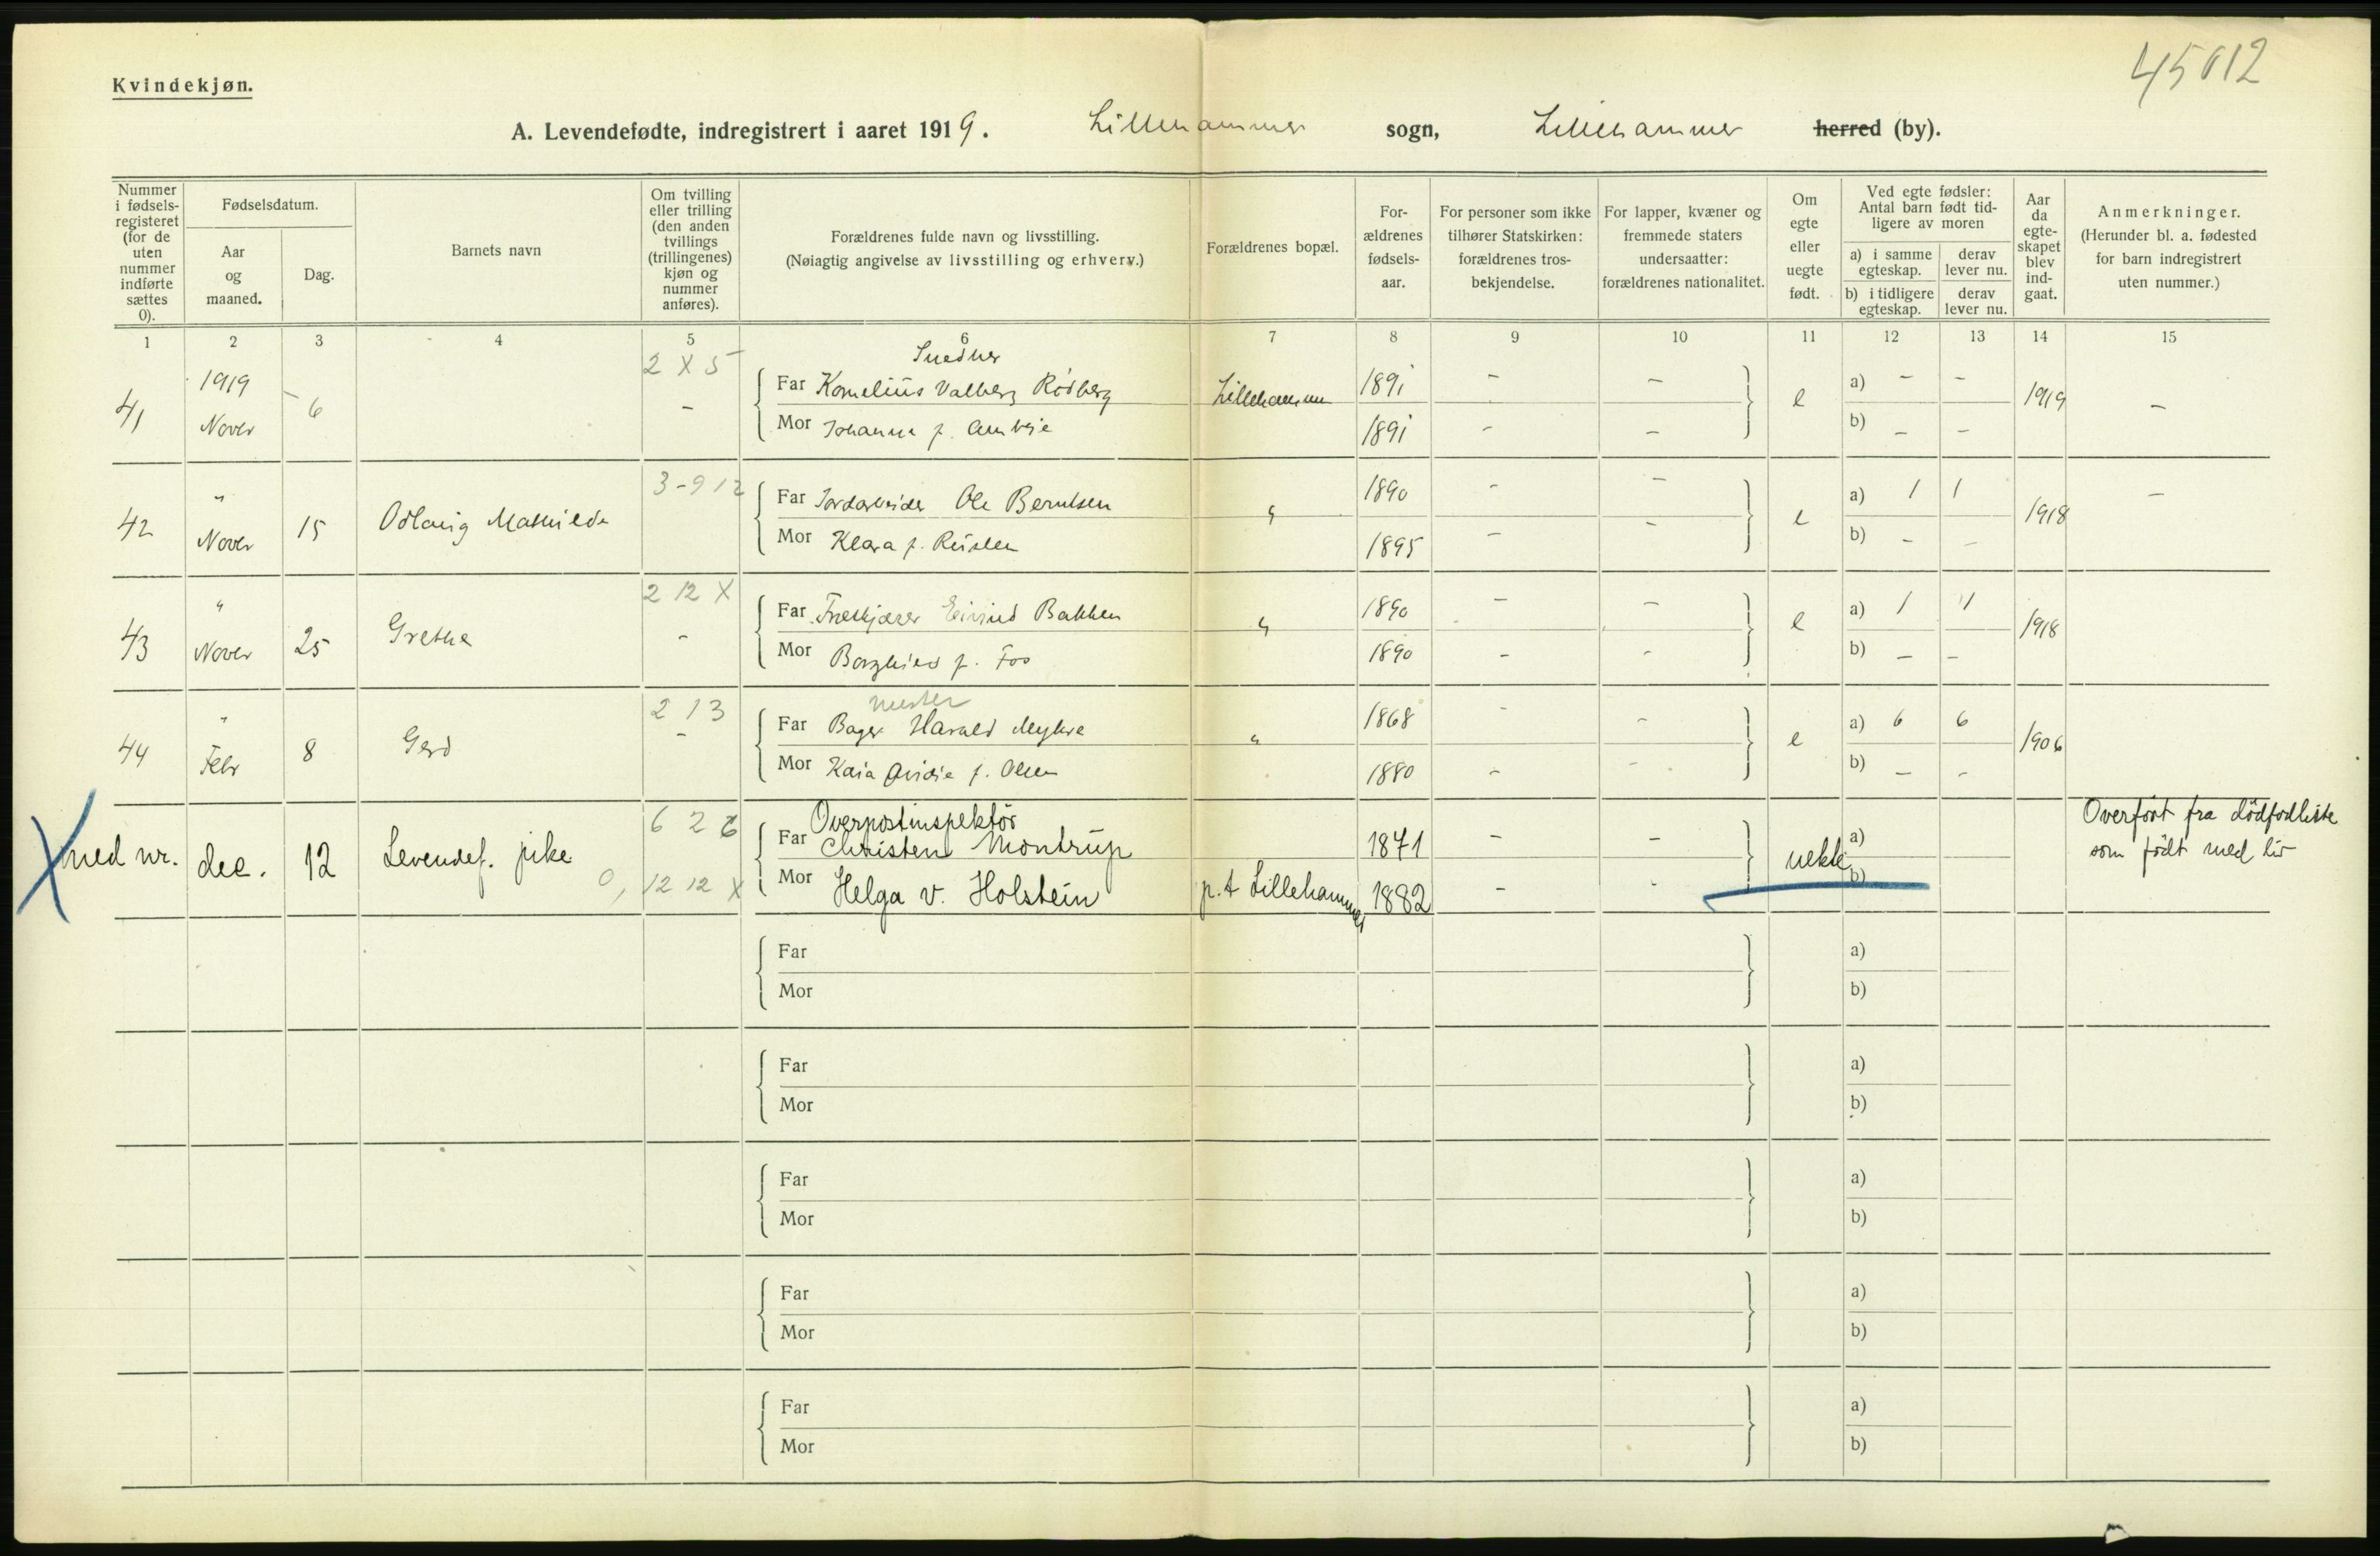 45612
Kvindekjøn.
A. Levendefødte, indregistrert i aaret 1919. Lillehammer sogn, Lillehammer herred (by).
Nummer i fødsels-registeret (for de uten nummer indførte sættes 0).
Fødselsdatum.
Aar og maaned.
Dag.
Barnets navn
Om tvilling eller trilling (den anden tvillings (trillingenes) kjøn og nummer anføres).
Forældrenes fulde navn og livsstilling.
(Nøiagtig angivelse av livsstilling og erhverv.)
Forældrenes bopæl.
For-ældrenes fødsels-aar.
For personer som ikke tilhører Statskirken: forældrenes tros-bekjendelse.
For lapper, kvæner og fremmede staters undersaatter: forældrenes nationalitet.
Om egte eller uegte født.
Ved egte fødsler: Antal barn født tid-ligere av moren
a) i samme egteskap.
derav lever nu.
b) i tidligere egteskap.
derav lever nu.
Aar da egte-skapet blev ind-gaat.
Anmerkninger.
(Herunder bl. a. fødested for barn indregistrert uten nummer.)
1 2 3 4 5 6 7 8 9 10 11 12 13 14 15
2 X 5 Snedker
41 1919 Novbr 6 - Far Kornelius Valberg Rødberg Lillehammer 1891 - - e a) - - 1919 -
Mor Johanna f. 1891 - - b) - -
3-9 12
42 " Novbr 15 Odlaug Mathilde Far Jordarbeider Ole Berntsen " 1890 - - e a) 1 1 1918 -
Mor Klara f. 1895 - - b) - -
2 12 X
43 " Novbr 25 Grethe - Far Træskjærer Eivind Bakken " 1890 - - e a) 1 1 1918
Mor Borghild f. Fos 1890 - - b) - -
2 13 mester
44 " Febr 8 Gerd - Far Bager Harald Myhre " 1868 - - e a) 6 6 1906
Mor Kaia f. Olsen 1880 - - b) - -
6 2 6 Overpostinspektör Overfört fra dödfodliste
X ned nr. dec. 12 Levendef. pike Far Christen Montrup 1871 - - uekte a) som födt med liv
0, 12 12 X Mor Helga v. Holstein p.t Lillehammer 1882 - - b)
Far a)
Mor b)
Far a)
Mor b)
Far a)
Mor b)
Far a)
Mor b)
Far a)
Mor b)